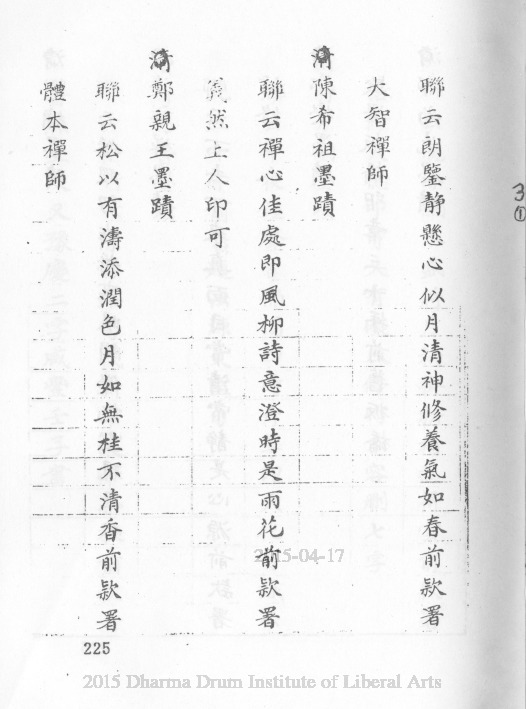 聯云朗鑒静懸心似月清神修養氣如春前欵署
大智禪師
清陳希祖墨蹟
聯云禪心佳處即風柳詩意澄時是雨花前欵署
義然上人印可
清鄭親王墨蹟
聯云松以有濤添潤色月如無桂不清香前欵署
體本禪師
3
①
2015-04-17
225
2015 Dharma Drum Institute of Liberal Arts